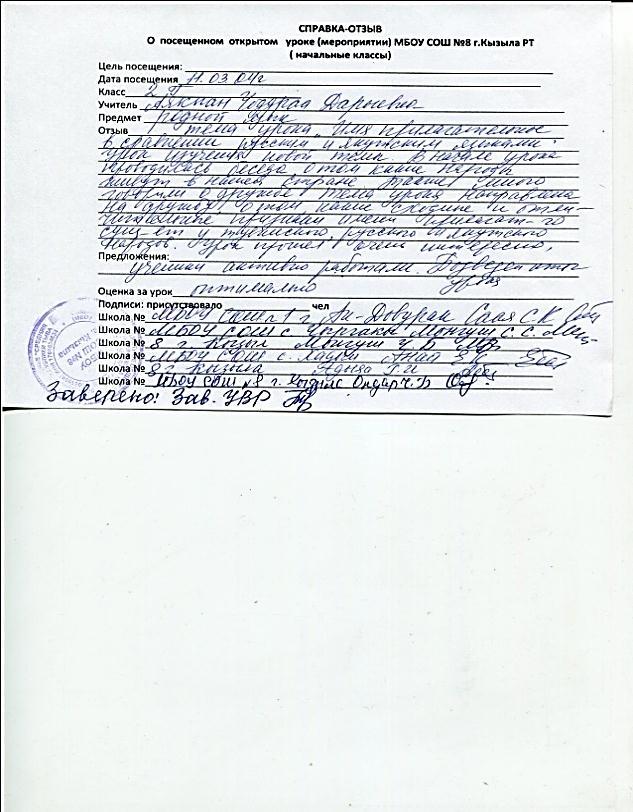 СПРАВКА-ОТЗЫВ
О посещенном открытом уроке (мероприятии) МБОУ СОШ №8 г.Кызыла РТ
( начальные классы)
Цель посещения:
Дата посещения 11.03.04г
Класс 2
Учитель Аякпан Чодураа Дарыевна
Предмет родной язык
Отзыв тема урока „Имя прилагательное
в сравнении русским и якутским языками
урок изучения новой темы. В начале урока
проводилась беседа о том какие народы
живут в нашей стране много
говорили о дружбе. Тема урока направлена
на о том какие сходные и отли-
чительные признаки имен прилагат-го
сущ-ет у тувинского, русского и якутского
народов. Урок прошел очень интересно,
Предложения:
ученики активно работали. Подведен итог
урока
Оценка за урок оптимально
Подписи: присутствовало чел
Школа № МБОУ СОШ №1 г Ак-Довурак Салая С.К
Школа № МБОУ СОШ с Монгуш С. С.
Школа № 8 г Кызыл Монгуш У В
Школа № МБОУ СОШ с.
Школа № 8 г Кызыла Г.И
Школа № МБОУ СОШ №8 г. Кызыла Ондар Ч. Б
Заверено: Зав. УВР